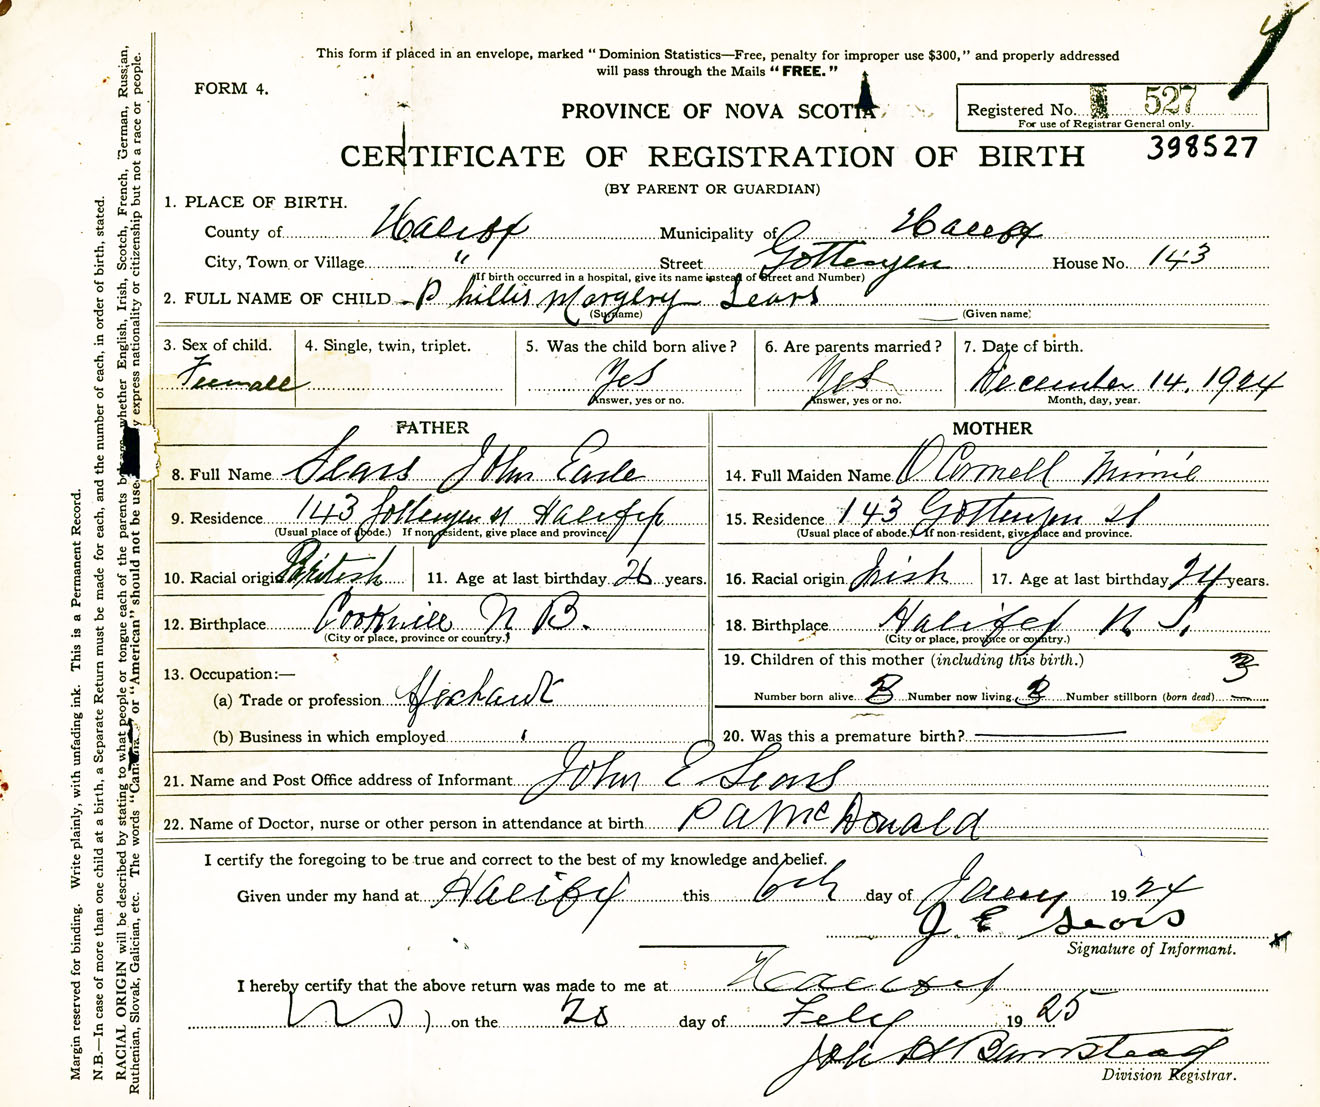 This form if placed in an envelope, marked "Dominion Statistics—Free, penalty for improper use $300," and properly addressed
will pass through the Mails "FREE."
FORM 4.
PROVINCE OF NOVA SCOTIA
Registered No. 527
For use of Registrar General only.
398527
CERTIFICATE OF REGISTRATION OF BIRTH
(BY PARENT OR GUARDIAN)
1. PLACE OF BIRTH.
County of Halifax Municipality of Halifax
City, Town or Village " Street Gottengen House No. 143
(If birth occurred in a hospital, give its name instead of Street and Number)
2. FULL NAME OF CHILD Phillis Margery Sears
(Surname) (Given name)
3. Sex of child. 4. Single, twin, triplet. 5. Was the child born alive? 6. Are parents married? 7. Date of birth.
Female Yes Yes December 14, 1924
Answer, yes or no. Answer, yes or no. Month, day, year.
FATHER MOTHER
8. Full Name Sears John Earle 14. Full Maiden Name O'Connell Minnie
9. Residence 143 Gottengen St Halifax 15. Residence 143 Gottengen St
(Usual place of abode.) If non-resident, give place and province (Usual place of abode.) If non-resident, give place and province.
10. Racial origin British 11. Age at last birthday 26 years. 16. Racial origin Irish 17. Age at last birthday 24 years.
12. Birthplace Cookville N B. 18. Birthplace Halifax N. S.
(City or place, province or country.) (City or place, province or country.)
13. Occupation:— 19. Children of this mother (including this birth.) 3
(a) Trade or profession Number born alive 3 Number now living 3 Number stillborn (born dead) —
(b) Business in which employed 20. Was this a premature birth? —
21. Name and Post Office address of Informant John E Sears
22. Name of Doctor, nurse or other person in attendance at birth P A McDonald
I certify the foregoing to be true and correct to the best of my knowledge and belief.
Given under my hand at Halifax this 6th day of 1924
J. E Sears
Signature of Informant.
I hereby certify that the above return was made to me at Halifax
NS) on the 20 day of Feby 1925
John H Barnstead
Division Registrar.
Margin reserved for binding. Write plainly, with unfading ink. This is a Permanent Record.
N.B.—In case of more than one child at a birth, a Separate Return must be made for each, and the number of each, in order of birth, stated.
RACIAL ORIGIN will be described by stating to what people or tongue each of the parents whether English, Irish, Scotch, French, German, Russian,
Ruthenian, Slovak, Galician, etc. The words or "American" should not be used express nationality or citizenship but not a race or people.